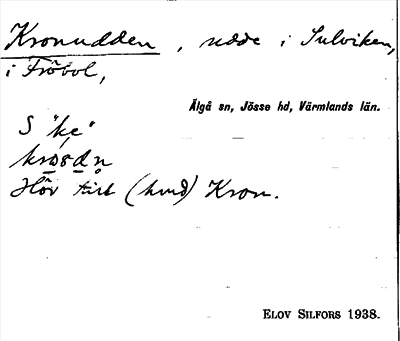 Kronudden, udde i Sulviken,
i Fröbol,
Älgå sn, Jösse hd, Värmlands län.
Hör till (hmd) Kron.
ELOV SILFORS 1938.